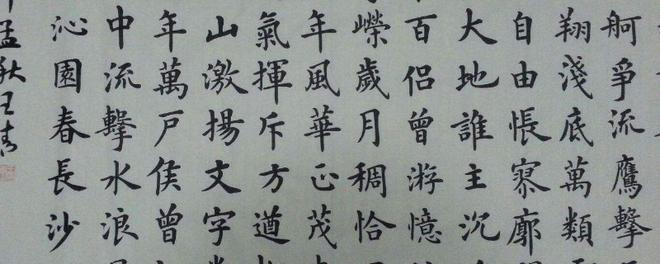 舸爭流鷹擊
翔淺底萬類
自由悵寥廓
大地誰主沉
百侶曾游憶
嶸歲月稠恰
年風華正茂
氣揮斥方遒
山激揚文字
年萬戶侯曾
中流擊水浪
沁園春長沙
孟秋王